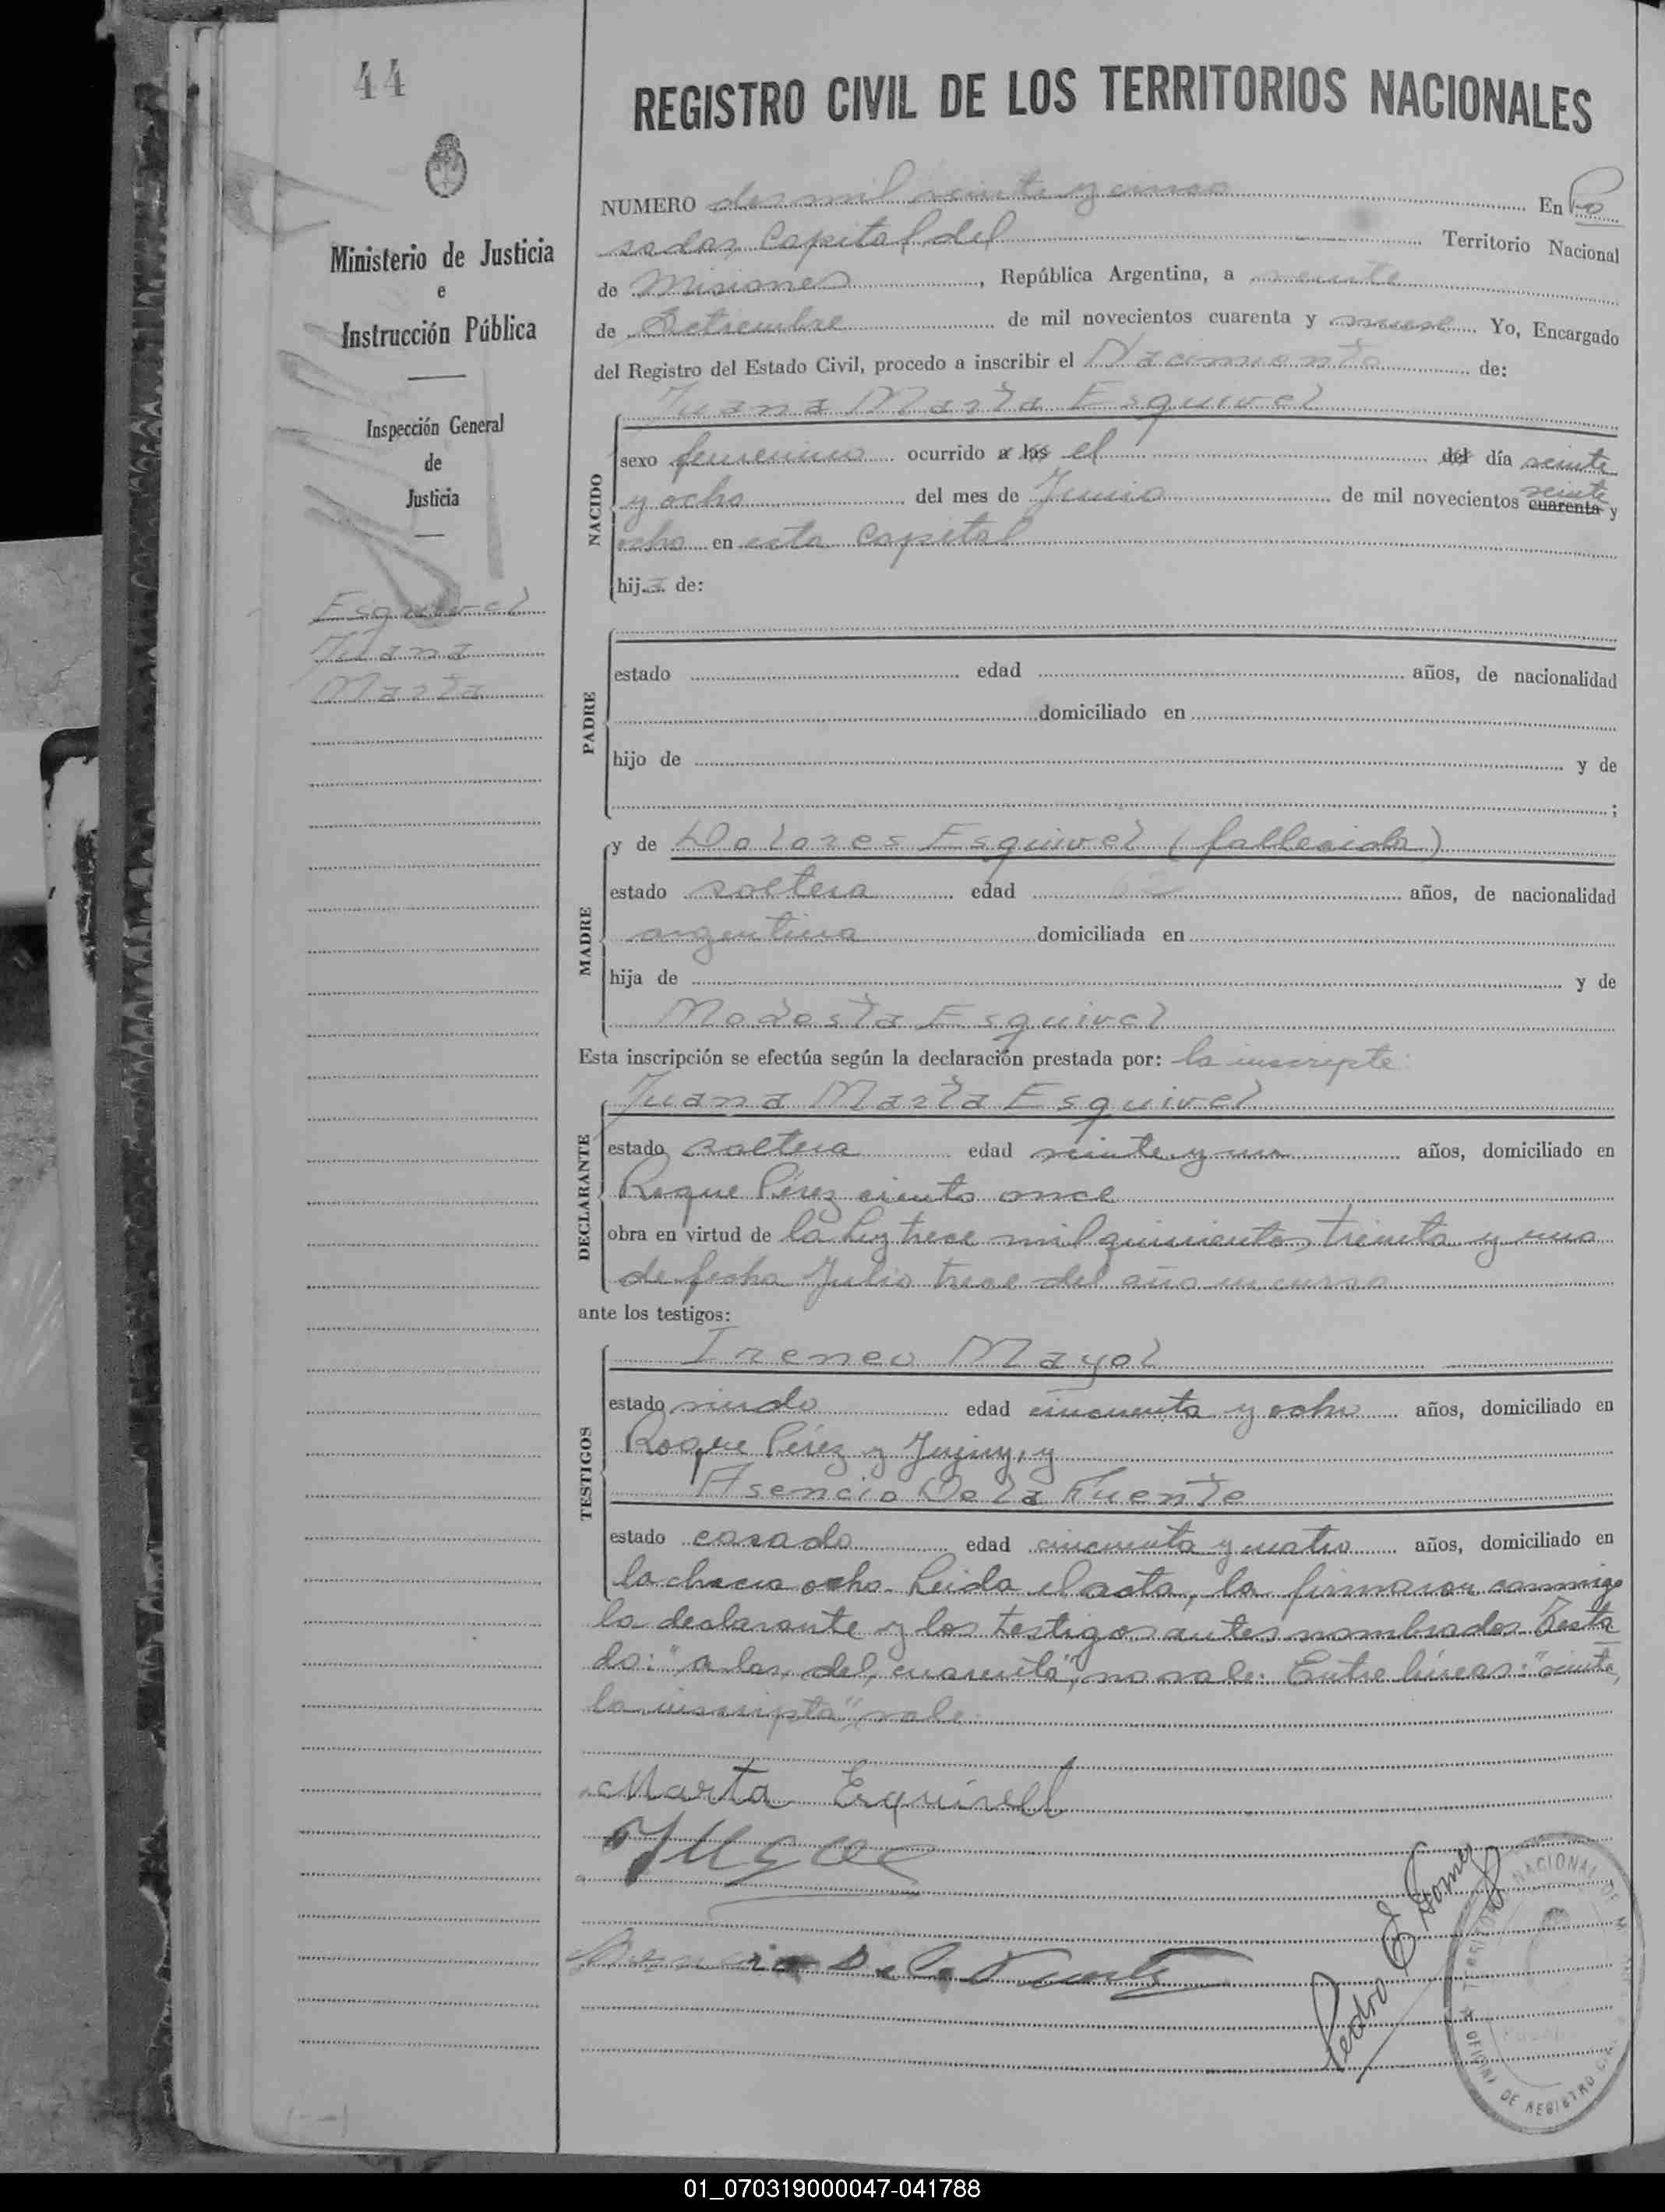 44
REGISTRO CIVIL DE LOS TERRITORIOS NACIONALES
Ministerio de Justicia
e
Instrucción Pública
Inspección General
de
Justicia
Esquivel
Juana
Marta
NUMERO dos mil veinte y cinco En Po
sadas, Capital del Territorio Nacional
de Misiones, República Argentina, a veinte
de Setiembre de mil novecientos cuarenta y nueve Yo, Encargado
del Registro del Estado Civil, procedo a inscribir el Nacimiento de:
Juana Marta Esquivel
NACIDO
sexo femenino ocurrido a las el del día veinte
y ocho del mes de Junio de mil novecientos cuarenta veinte y
ocho en esta Capital
hija de:
PADRE
estado edad años, de nacionalidad
domiciliado en
hijo de y de
;
MADRE
y de Dolores Esquivel (fallecida)
estado soltera edad años, de nacionalidad
argentina domiciliada en
hija de y de
Modesta Esquivel
Esta inscripción se efectúa según la declaración prestada por: la inscripta:
Juana Marta Esquivel
DECLARANTE
estado soltera edad veinte y un años, domiciliado en
Roque Pérez ciento once
obra en virtud de la Ley trece mil quinientos treinta y uno
de fecha Julio trece del año en curso
ante los testigos:
TESTIGOS
Ireneo Mayol
estado viudo edad cincuenta y ocho años, domiciliado en
Roque Pérez y Jujuy, y
Asencio De la Fuente
estado casado edad cincuenta y cuatro años, domiciliado en
la chacra ocho. Leida el acta, la firmaron conmigo
la declarante y los testigos antes nombrados. Testa
do: "a las, del, cuarenta", no vale. Entre líneas: "veinte,
la inscripta", vale.
Marta Esquivell
Asencio De la Fuente
Pedro E Gomez
TERRITORIO NACIONAL DE
OFICINA DE REGISTRO
01_070319000047-041788